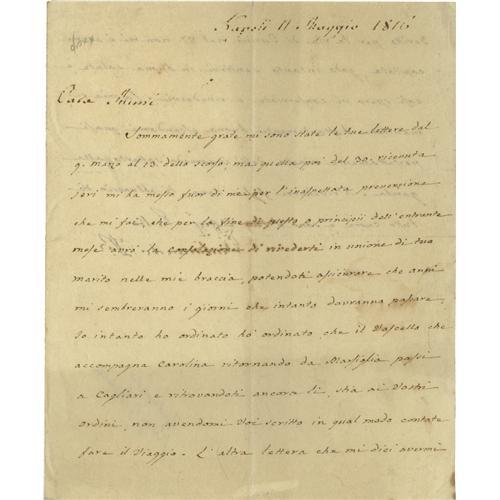 Napoli 11 Maggio 1816
Cara Mimi
Sommamente grate mi sono state le tue lettere dal
9. marzo al 13 dello scorso; ma quella poi del 30. ricevuta
jeri mi ha messo fuor di me per l'inaspettata prevenzione
che mi fai, che per la fine di questo o principii dell'entrante
mese avrò la consolazione di rivederti in unione di tuo
marito nelle mie braccia, potendoti assicurare che anni
mi sembreranno i giorni che intanto dovranno passare.
Io intanto ho ordinato ho ordinato che il Vascello che
accompagna Carolina ritornando da Marsiglia passi
a Cagliari e ritrovandoti ancora lì, stia ai Vostri
ordini, non avendomi Voi scritto in qual modo contate
fare il Viaggio. L'altra lettera che mi dici avermi